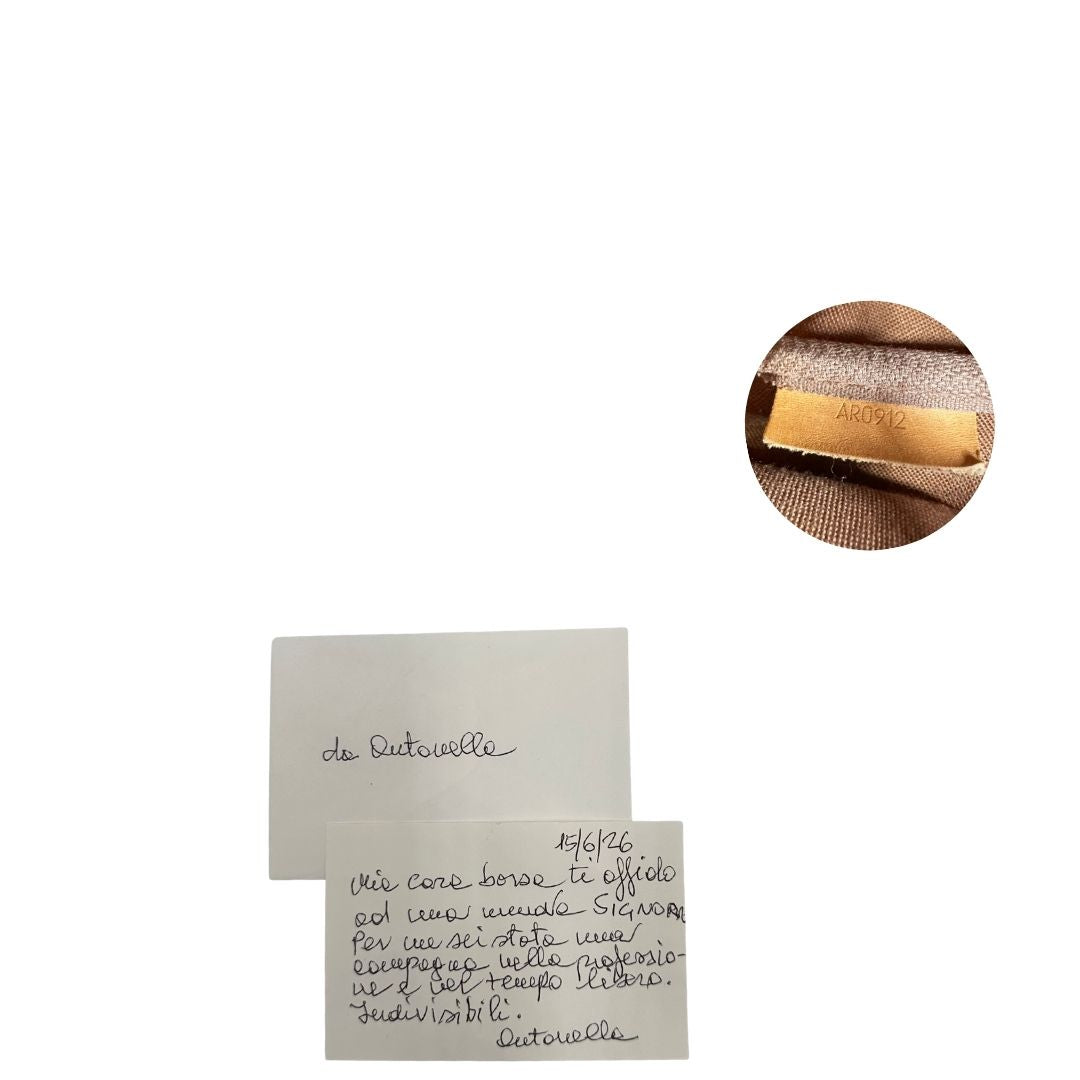 AR0912
da Antonella
15/6/26
Mia cara borsa ti affido
ad una nuova SIGNORA
Per me sei stata una
compagna nella professio-
ne e nel tempo libero.
Indivisibili.
Antonella